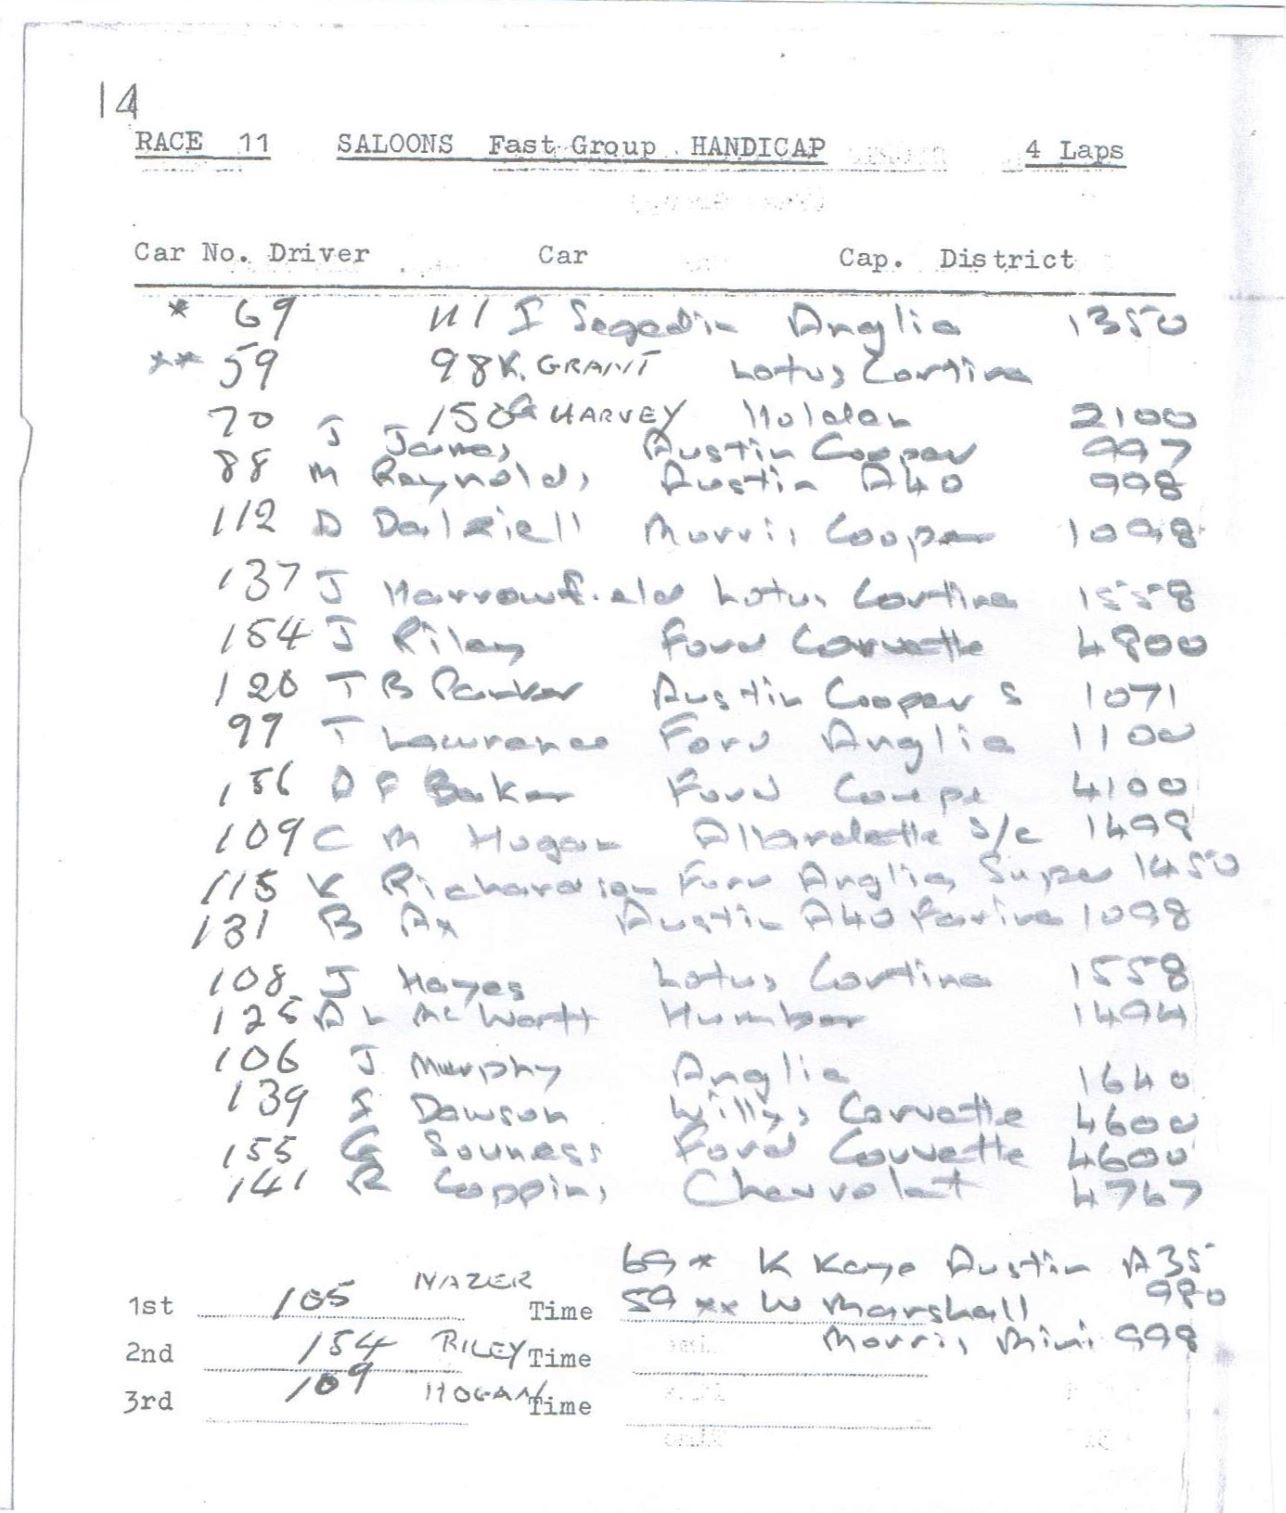 14
RACE 11 SALOONS Fast Group HANDICAP 4 Laps
Car No. Driver Car Cap. District
* 69 111 I Segedin Anglia 1350
** 59 98 K. GRANT Lotus Cortina
70 150 G HARVEY Holden 2100
J James Austin Cooper 997
88 M Reynolds Austin A40 998
112 D Dalziell Morris Cooper 1098
137 J Harrowfield Lotus Cortina 1558
154 J Riley Ford Corvette 4800
120 T B Parker Austin Cooper S 1071
99 T Lawrence Ford Anglia 1100
156 D F Baker Ford Coupe 4100
109 C M Hogan Allardette S/C 1498
115 K Richardson Ford Anglia Super 1450
131 B Ax Austin A40 Farina 1098
108 J Hayes Lotus Cortina 1558
125 A L McWortt Humber 1494
106 J Murphy Anglia 1640
139 S Dawson Willys Corvette 4600
155 G Souness Ford Corvette 4600
141 R Coppins Chevrolet 4767
69 * K Kaye Austin A35
980
1st 105 NAZER Time 59 ** W Marshall
Morris Mini 998
2nd 154 RILEY Time
3rd 109 HOGAN Time